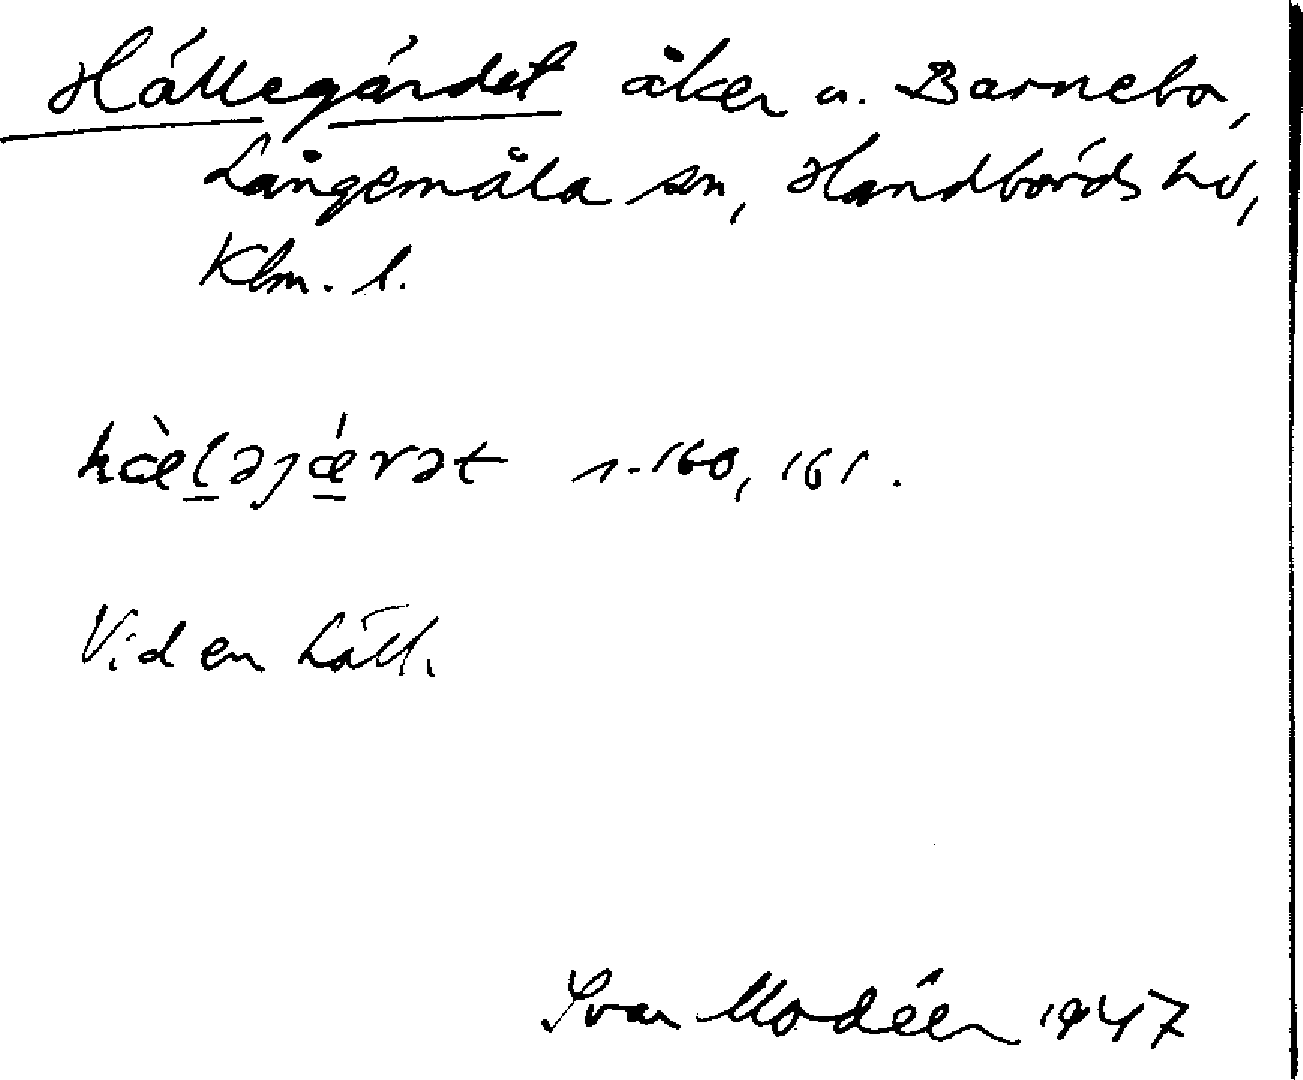 Hällegärdet åker u. Barnebo,
Långemåla sn, Handbörds hd,
Klm. l.
hæ̀l̠əȷǽ̠rət s. 160, 161.
Vid en häll.
Ivar Modéer 1947